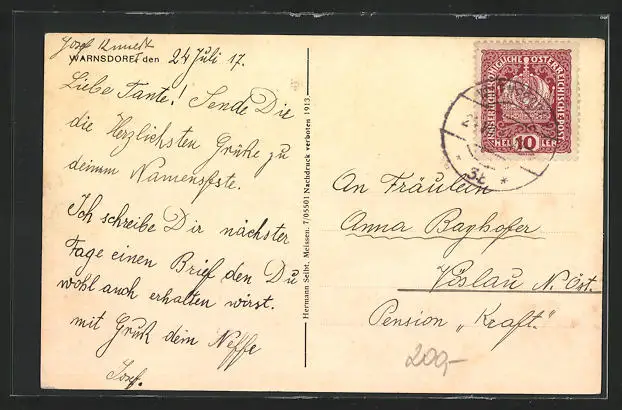 Josef
WARNSDORF, den 24 Juli 17.
Liebe Tante! Sende Die
die Herzlichsten Grüße zu
deinem Namensfeste.
Ich schreibe Dir nächster
Tage einen Brief den Du
wohl auch erhalten wirst.
mit Gruß dein Neffe
Josef.
Hermann Seibt, Meissen. 7/05501 Nachdruck verboten 1913.
KAISERLICHE KÖNIGLICHE ÖSTERREICHISCHE POST
HELLER 10
3b
An Fräulein
Anna Bayhofer
Vöslau N. Öst.
Pension „Kraft."
200,-